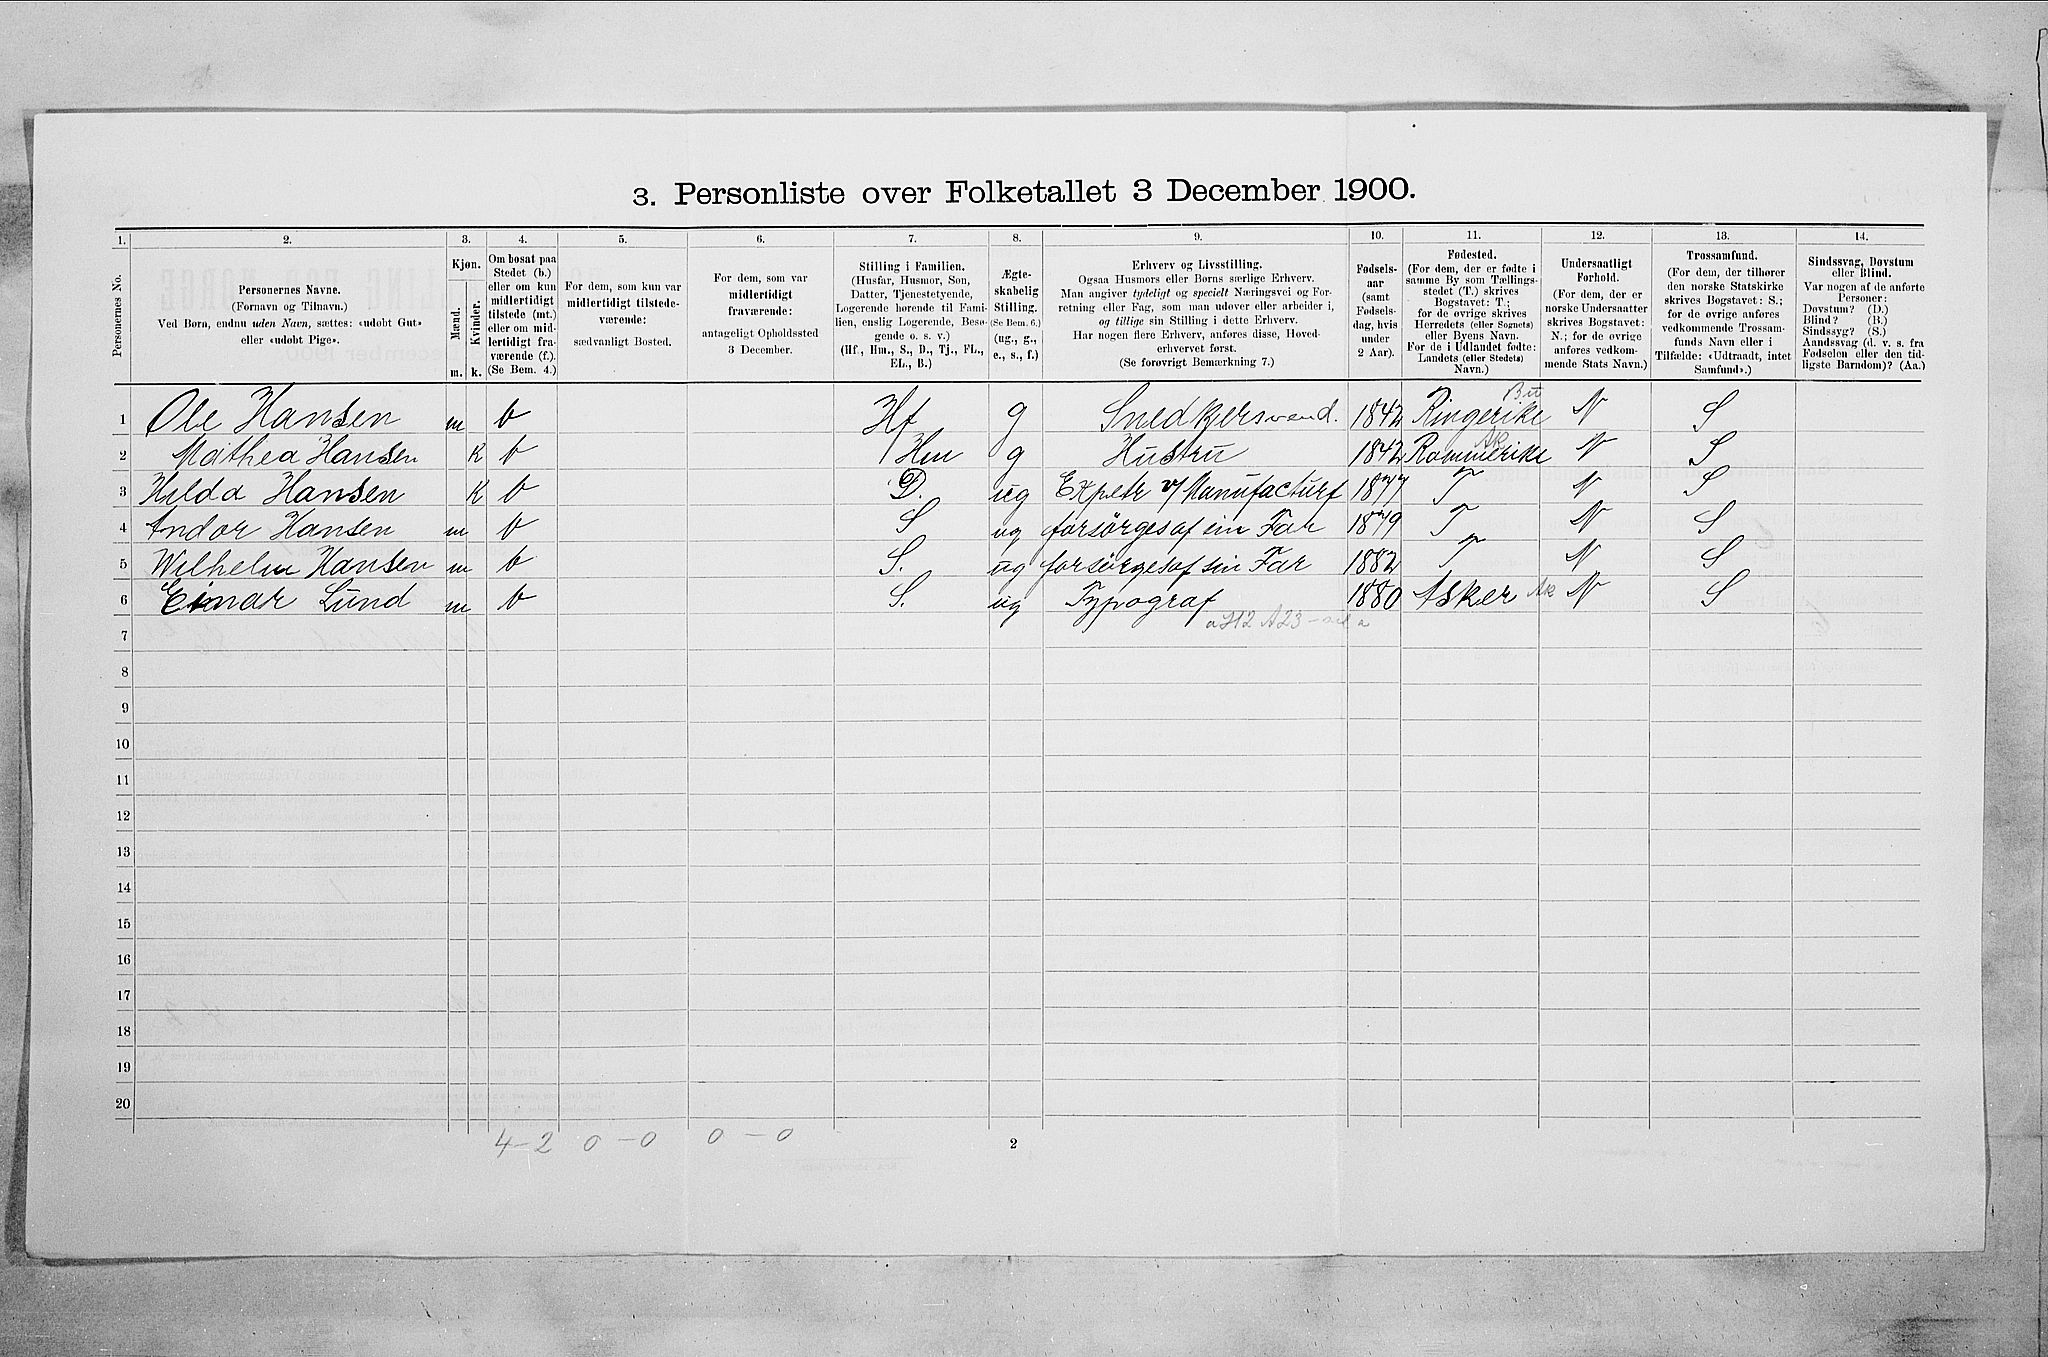 3. Personliste over Folketallet 3 December 1900.
1. 2. 3. 4. 5. 6. 7. 8. 9. 10. 11. 12. 13. 14.
Personernes No.
Personernes Navne.
(Fornavn og Tilnavn.)
Ved Børn, endnu uden Navn, sættes: «udøbt Gut»
eller «udøbt Pige».
Kjøn.
Mænd. Kvinder.
m. k.
Om bosat paa
Stedet (b.)
eller om kun
midlertidigt
tilstede (mt.)
eller om mid-
lertidigt fra-
værende (f.).
(Se Bem. 4.)
For dem, som kun var
midlertidigt tilstede-
værende:
sædvanligt Bosted.
For dem, som var
midlertidigt
fraværende:
antageligt Opholdssted
3 December.
Stilling i Familien.
(Husfar, Husmor, Søn,
Datter, Tjenestetyende,
Logerende hørende til Fami-
lien, enslig Logerende, Besø-
gende o. s. v.)
(Hf., Hm., S., D., Tj., FL.,
EL., B.)
Ægte-
skabelig
Stilling.
(Se Bem. 6.)
(ug., g.,
e., s., f.)
Erhverv og Livsstilling.
Ogsaa Husmors eller Børns særlige Erhverv.
Man angiver tydeligt og specielt Næringsvei og For-
retning eller Fag, som man udøver eller arbeider i,
og tillige sin Stilling i dette Erhverv.
Har nogen flere Erhverv, anføres disse, Hoved-
erhvervet først.
(Se forøvrigt Bemærkning 7.)
Fødsels-
aar
(samt
Fødsels-
dag, hvis
under
2 Aar).
Fødested.
(For dem, der er fødte i
samme By som Tællings-
stedet (T.) skrives
Bogstavet: T.;
for de øvrige skrives
Herredets (eller Sognets)
eller Byens Navn.
For de i Udlandet fødte:
Landets (eller Stedets)
Navn.)
Undersaatligt
Forhold.
(For dem, der er
norske Undersaatter
skrives Bogstavet:
N.; for de øvrige
anføres vedkom-
mende Stats Navn.)
Trossamfund.
(For dem, der tilhører
den norske Statskirke
skrives Bogstavet: S.;
for de øvrige anføres
vedkommende Trossam-
funds Navn eller i
Tilfælde: «Udtraadt, intet
Samfund».)
Sindssvag, Døvstum
eller Blind.
Var nogen af de anførte
Personer:
Døvstum? (D.)
Blind? (B.)
Sindssyg? (S.)
Aandssvag (d. v. s. fra
Fødselen eller den tid-
ligste Barndom)? (Aa.)
1 Ole Hansen m b Hf g Snedkersvend. 1842 Ringerike Bu N S
2 Mathea Hansen K b Hm g Hustru 1842 Rommerike Ak N S
3 Hilda Hansen K b D. ug Expetr v/ Manufacturf 1877 T N S
4 Andor Hansen m b S ug forsörges af sin Far 1879 T N S
5 Wilhelm Hansen m b S. ug forsörges af sin Far 1882 T N S
6 Einar Lund m b S. ug Typograf 1880 Asker Ak N S
7
8
9
10
11
12
13
14
15
16
17
18
19
20
4-2 0-0 0-0
2